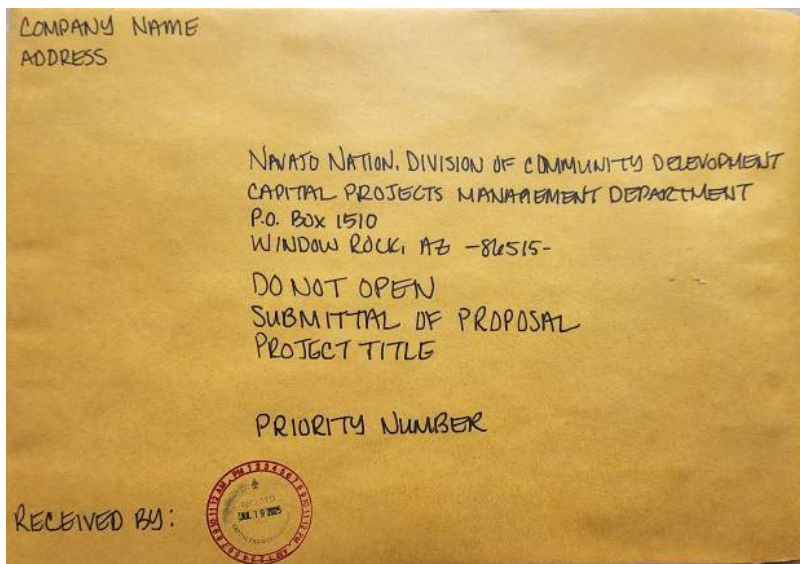 COMPANY NAME
ADDRESS
NAVAJO NATION, DIVISION OF COMMUNITY DELEVOPMENT
CAPITAL PROJECTS MANAGEMENT DEPARTMENT
P.O. BOX 1510
WINDOW ROCK, AZ -86515-
DO NOT OPEN
SUBMITTAL OF PROPOSAL
PROJECT TITLE
PRIORITY NUMBER
RECEIVED BY:
19 2025